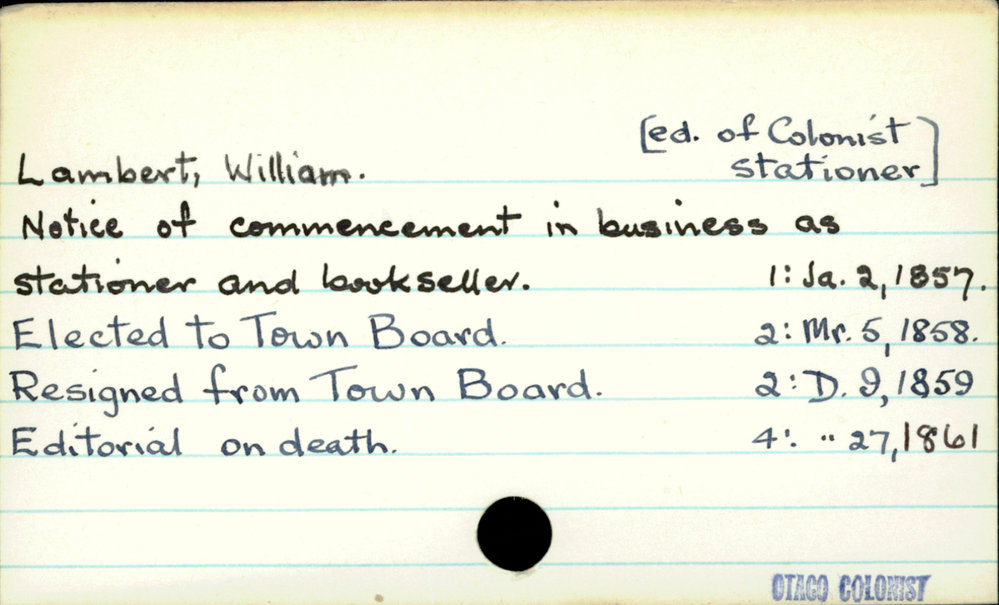 [ed. of Colonist
stationer]
Lambert, William.
Notice of commencement in business as
stationer and bookseller. 1: Ja. 2, 1857.
Elected to Town Board. 2: Mr. 5, 1858.
Resigned from Town Board. 2: D. 9, 1859
Editorial on death. 4: " 27, 1861
OTAGO COLONIST